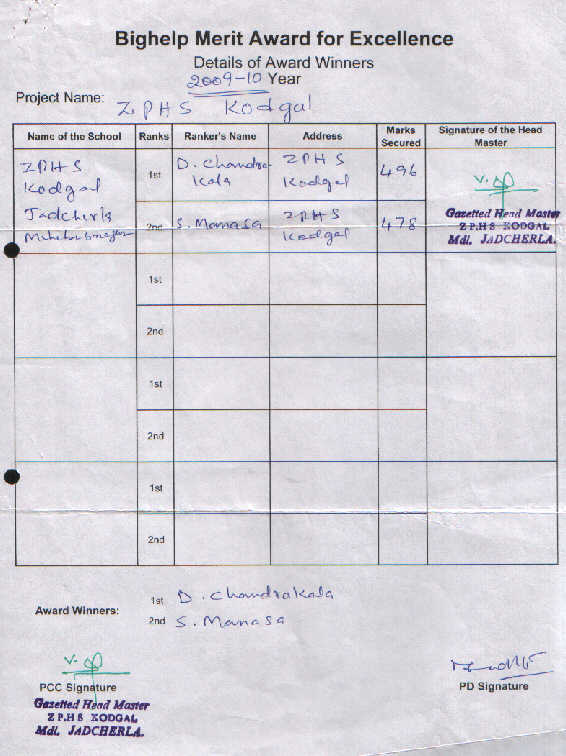 Bighelp Merit Award for Excellence
Details of Award Winners
2009-10 Year
Project Name: ZPHS Kodgal
Name of the School Ranks Ranker's Name Address Marks Secured Signature of the Head Master
ZPHS
Kodgal
Jadcherla
1st D. Chandra
Kala
ZPHS
Kodgal
496
2nd S. Manasa
ZPHS
Kodgal
478
Gazetted Head Master
Z P.H S KODGAL
Mdl. JADCHERLA.
1st
2nd
1st
2nd
1st
2nd
Award Winners:
1st D. Chandrakala
2nd S. Manasa
PCC Signature
Gazetted Head Master
Z P.H S KODGAL
Mdl. JADCHERLA.
PD Signature